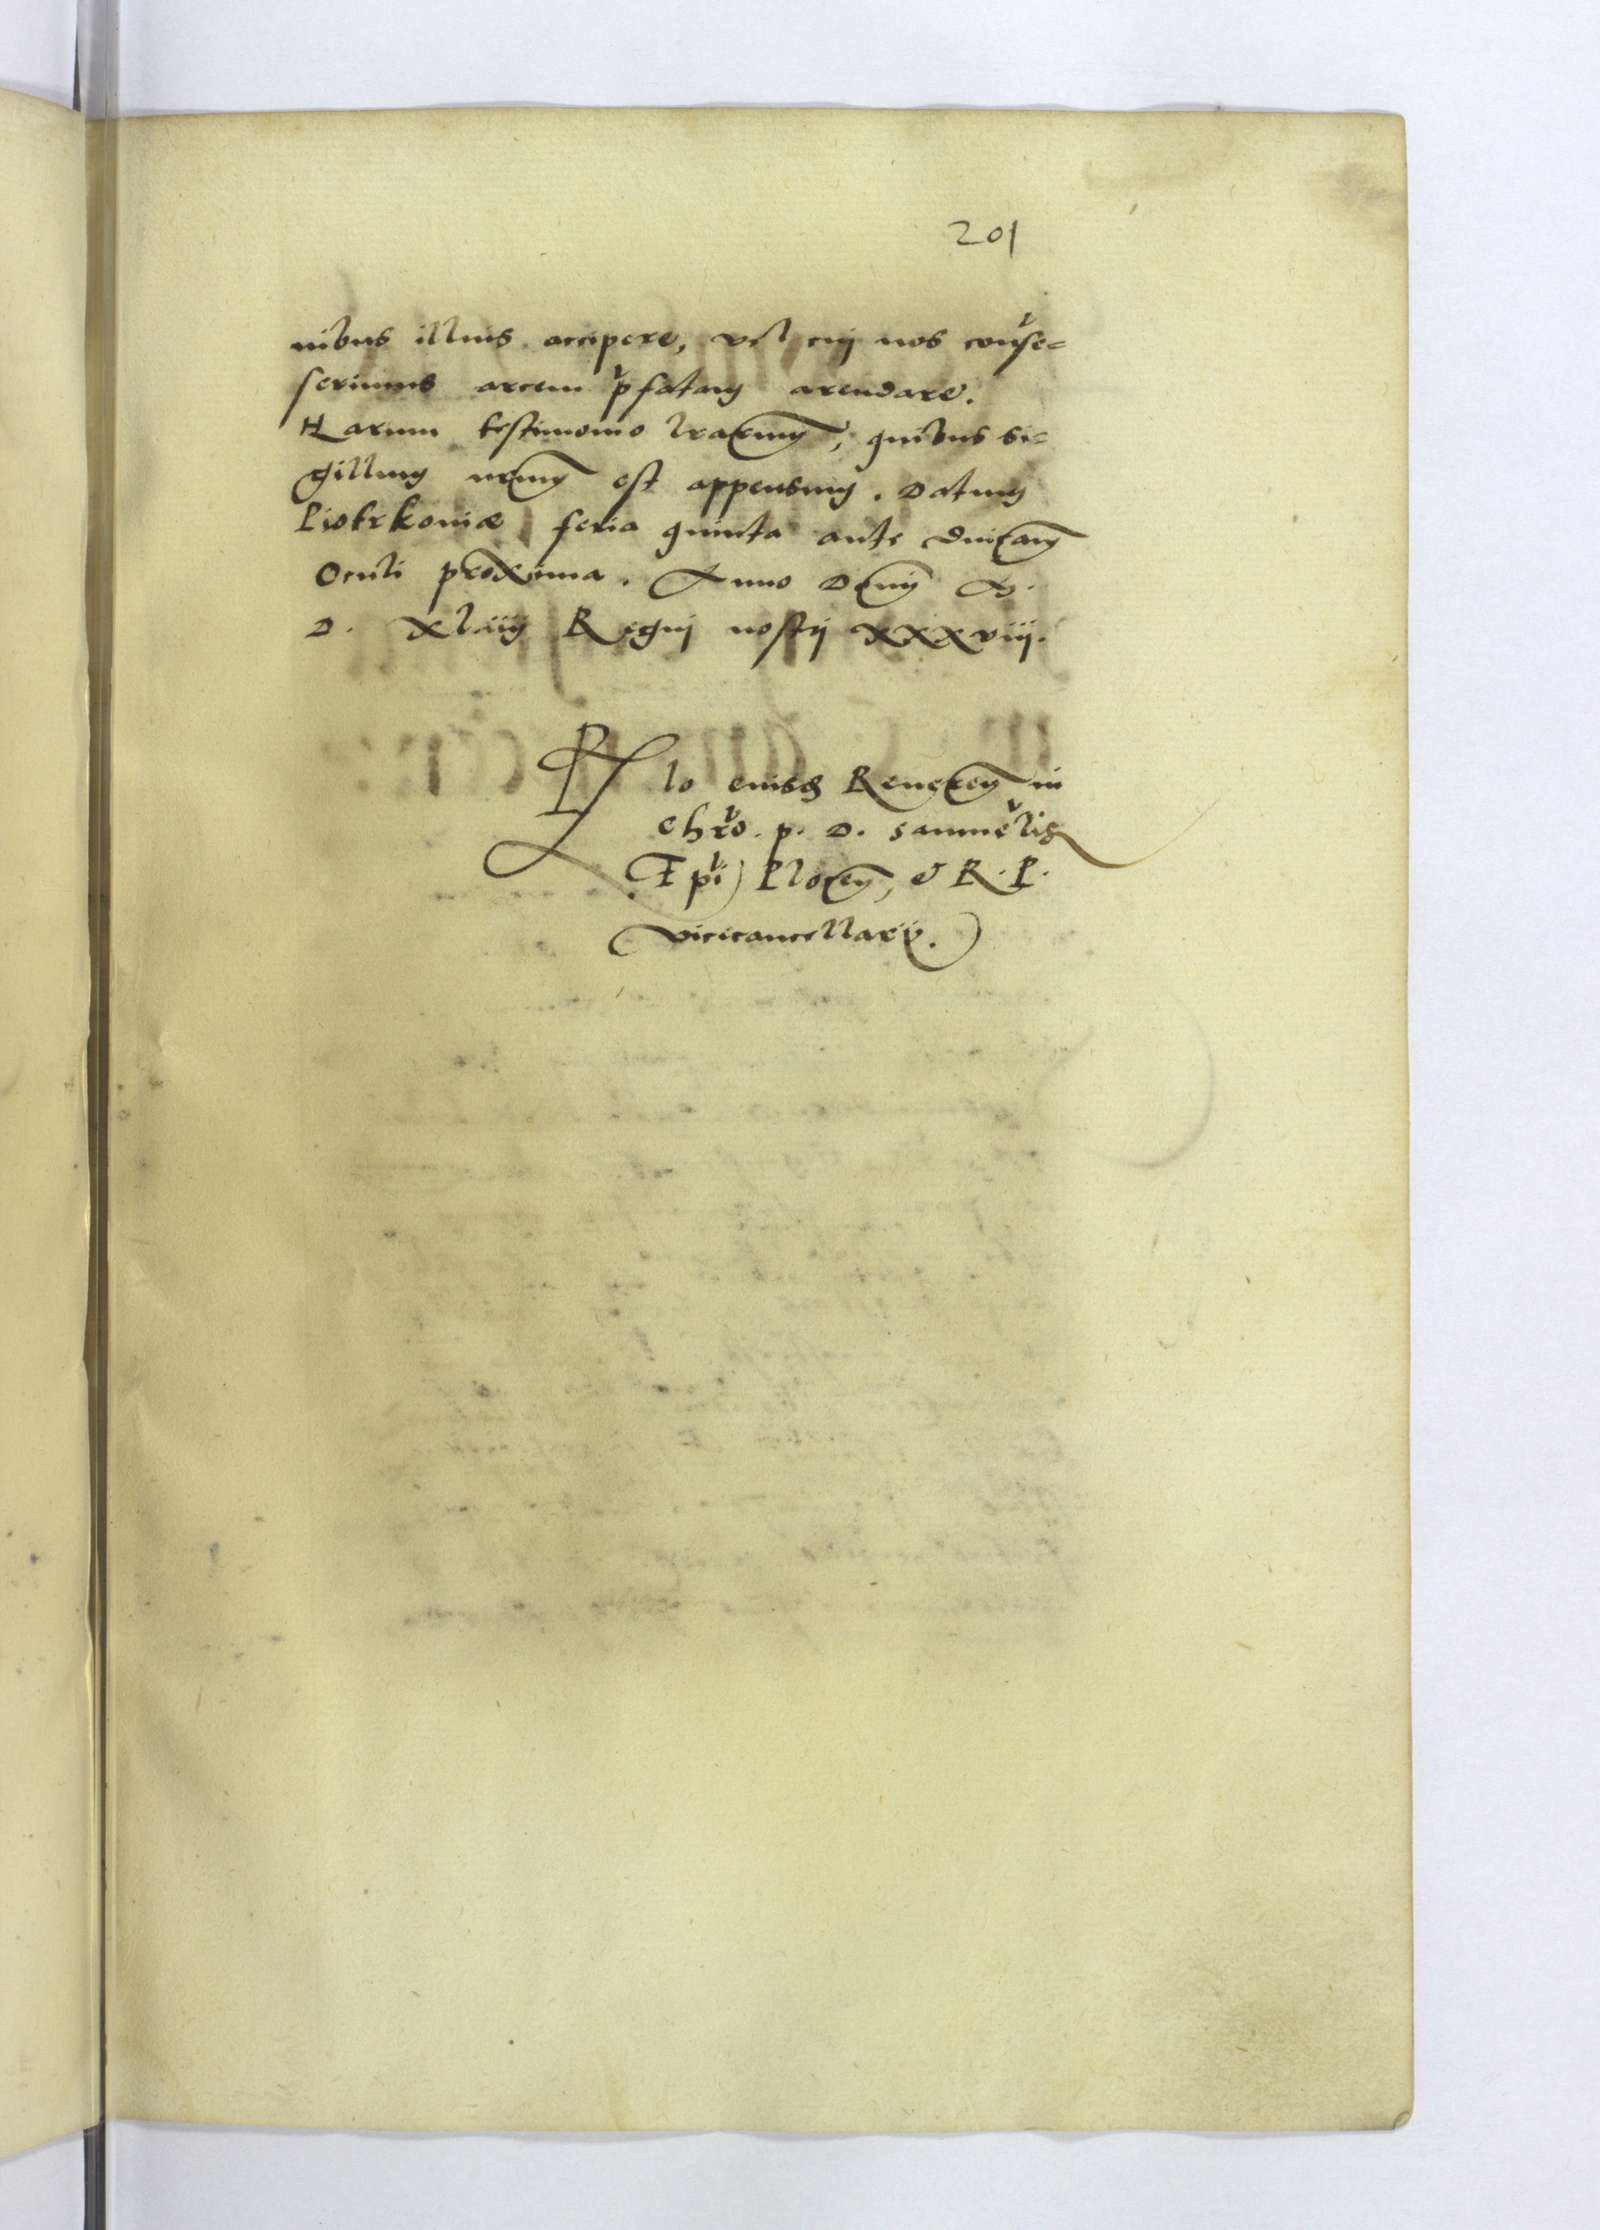 201
nibus illius accipere, vel cui nos conse=
serimus arcem pfatam arendare.
Harum testimonio lrarum, quibus si=
gillum nrum est appensum. Datum
Piotrkoniæ feria quinta ante dnicam
Oculi proxima. Anno Dni M.
D. xliiij Regni nostri xxxviij.
Rlo eiusd Reueren in
chro. p. D. samuelis
Epi Plocen, & R. P.
vicecancellarij.